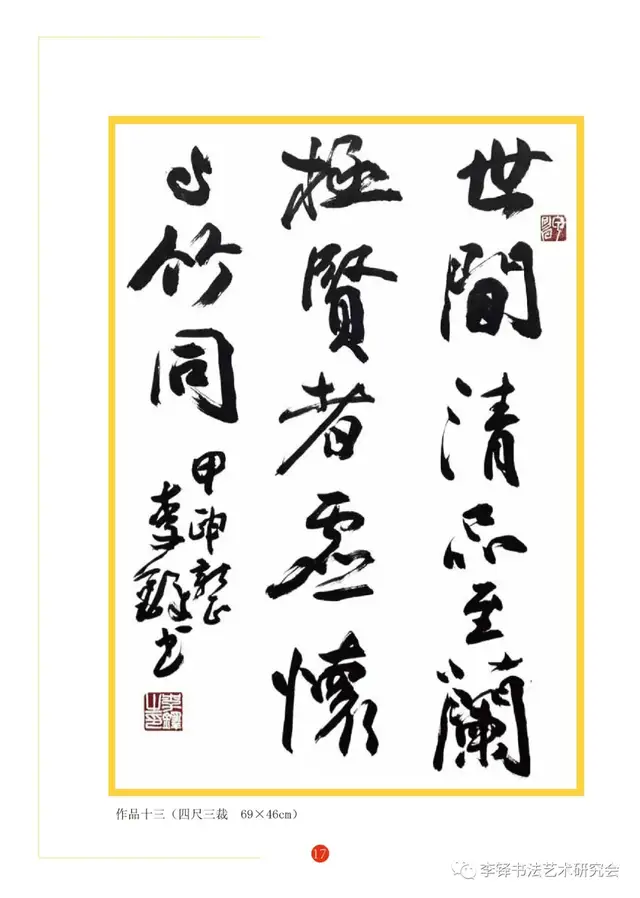 世間清品至蘭
極賢者虚懷
与竹同
甲申新正
李鐸书
李鐸之印
作品十三（四尺三裁　69×46cm）
17
李铎书法艺术研究会